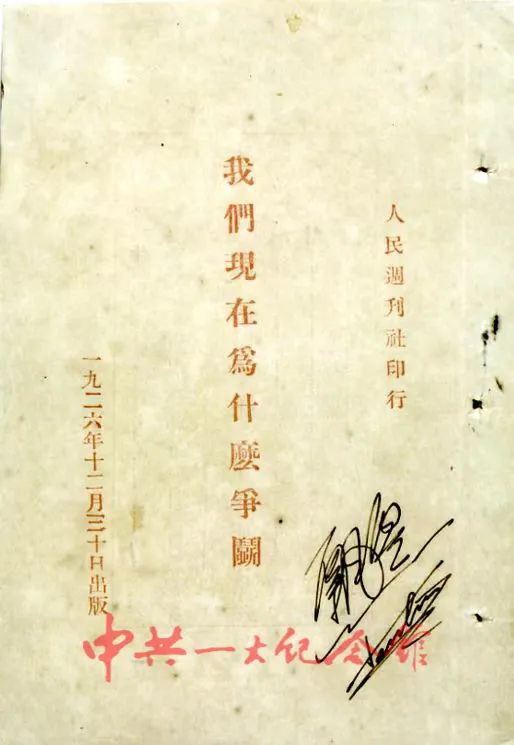 人民週刊社印行
我們現在爲什麼爭鬭
一九二六年十二月三十日出版
中共一大纪念馆